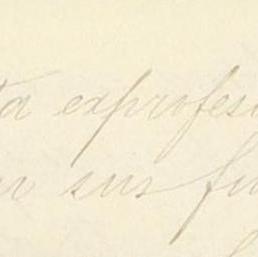 ta exprofes
sus fu